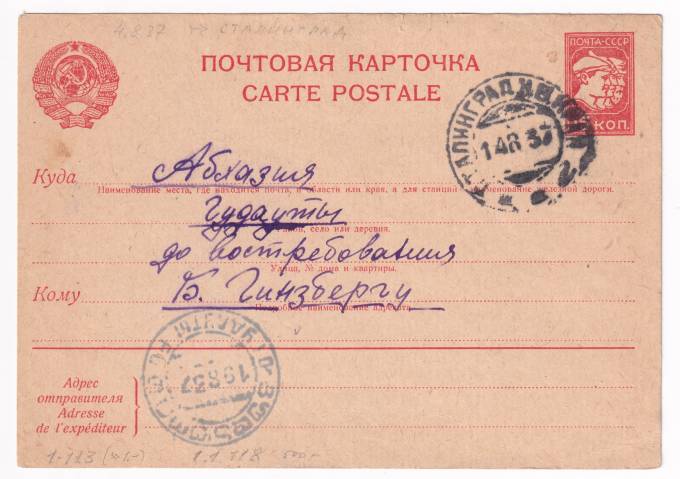 4.8.37 из СТАЛИНГРАДА
ПОЧТОВАЯ КАРТОЧКА
CARTE POSTALE
ПОЧТА-СССР
КОП.
СТАЛИНГРАД
14 8 37
Куда Абхазия
Наименование места, где находится почта, и области или края, а для станций наименование железной дороги.
Гудауты
Район, село или деревня.
до востребования
Улица, № дома и квартиры.
Кому Б. Гинзбергу
Подробное наименование адресата.
ГУДАУТЫ
19 8 37
Адрес
отправителя
Adresse
de l'expéditeur
1-113
1.1 118